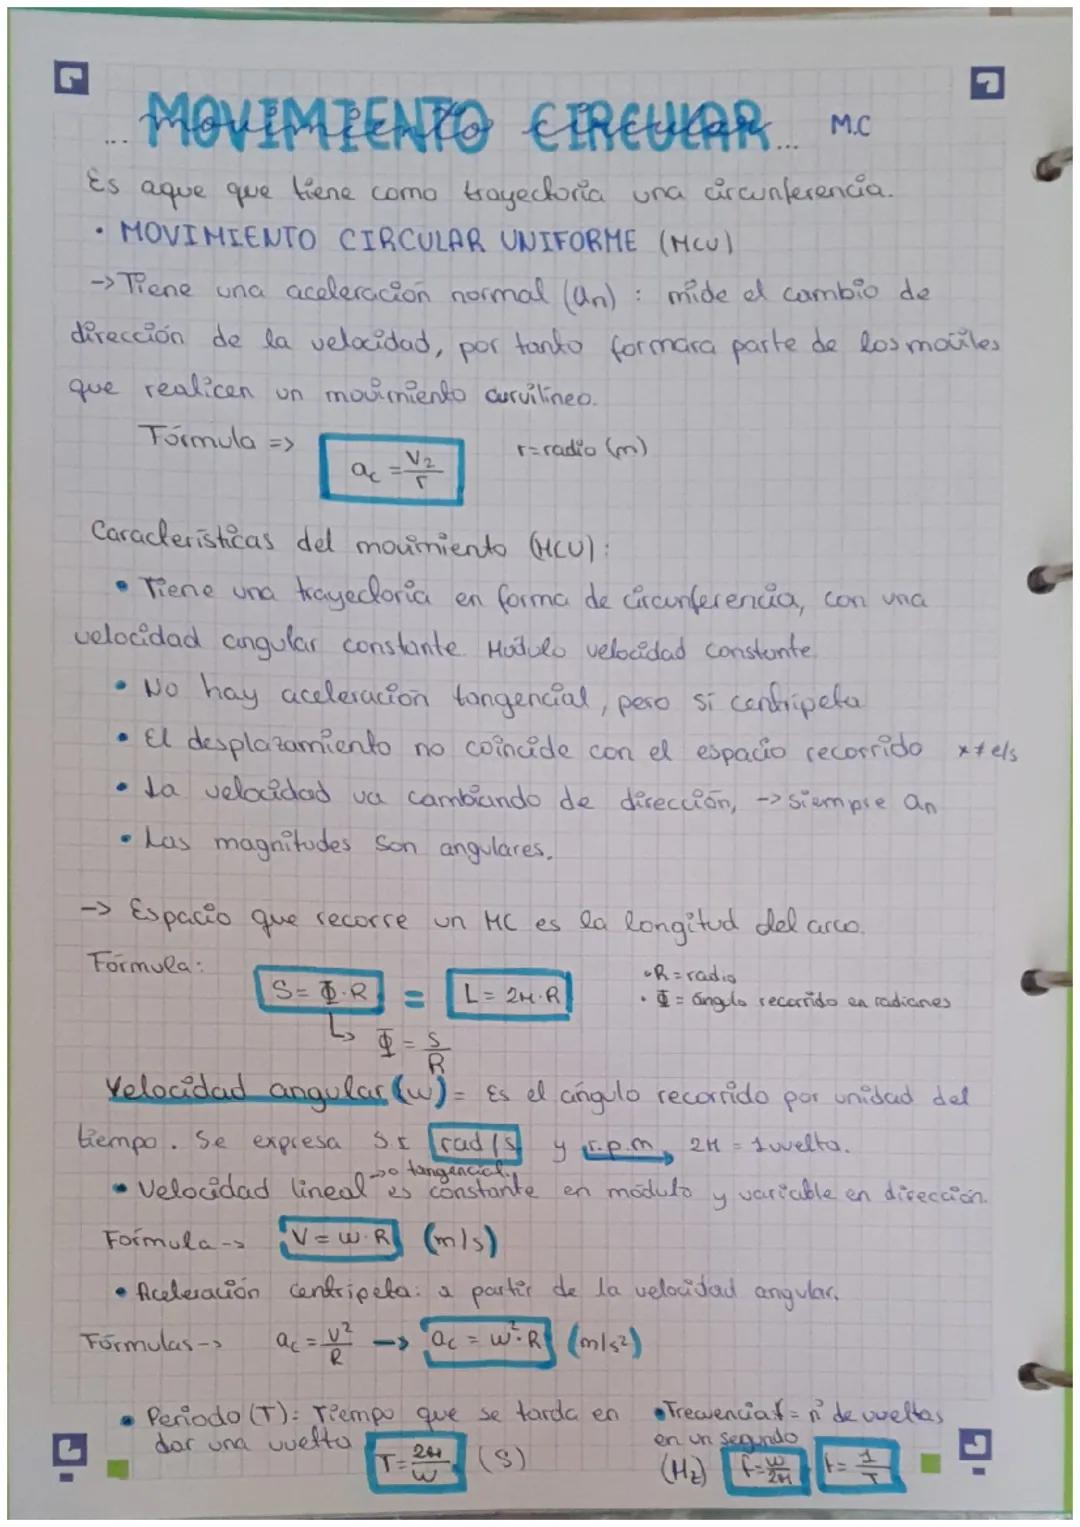 ... MOVIMIENTO CIRCULAR... M.C
movimiento circular
Es aque que tiene como trayectoria una circunferencia.
• MOVIMIENTO CIRCULAR UNIFORME (MCU)
-> Tiene una aceleración normal (an) : mide el cambio de
dirección de la velocidad, por tanto formara parte de los moviles
que realicen un movimiento curvilíneo.
Fórmula => ac = V2/r r=radio (m)
Características del movimiento (MCU):
• Tiene una trayectoria en forma de circunferencia, con una
velocidad angular constante. Módulo velocidad constante.
• No hay aceleración tangencial, pero sí centrípeta
• El desplazamiento no coincide con el espacio recorrido x ≠ e/s
• La velocidad va cambiando de dirección, -> siempre an
• Las magnitudes son angulares.
-> Espacio que recorre un MC es la longitud del arco.
Fórmula: S= Φ·R = L= 2π·R
• R = radio
• Φ = ángulo recorrido en radianes
↳ Φ = S/R
Velocidad angular (w) = Es el ángulo recorrido por unidad del
tiempo. Se expresa SI rad/s y r.p.m, 2π = 1 vuelta.
• Velocidad lineal ->o tangencial, es constante en módulo y variable en dirección.
Fórmula -> V = w·R (m/s)
• Aceleración centrípeta: a partir de la velocidad angular.
Fórmulas -> ac = v²/R -> ac = w²·R (m/s²)
• Periodo (T): Tiempo que se tarda en
dar una vuelta T= 2π/w (S)
• Frecuencia f = nº de vueltas
en un segundo
(Hz) f= w/2π f= 1/T